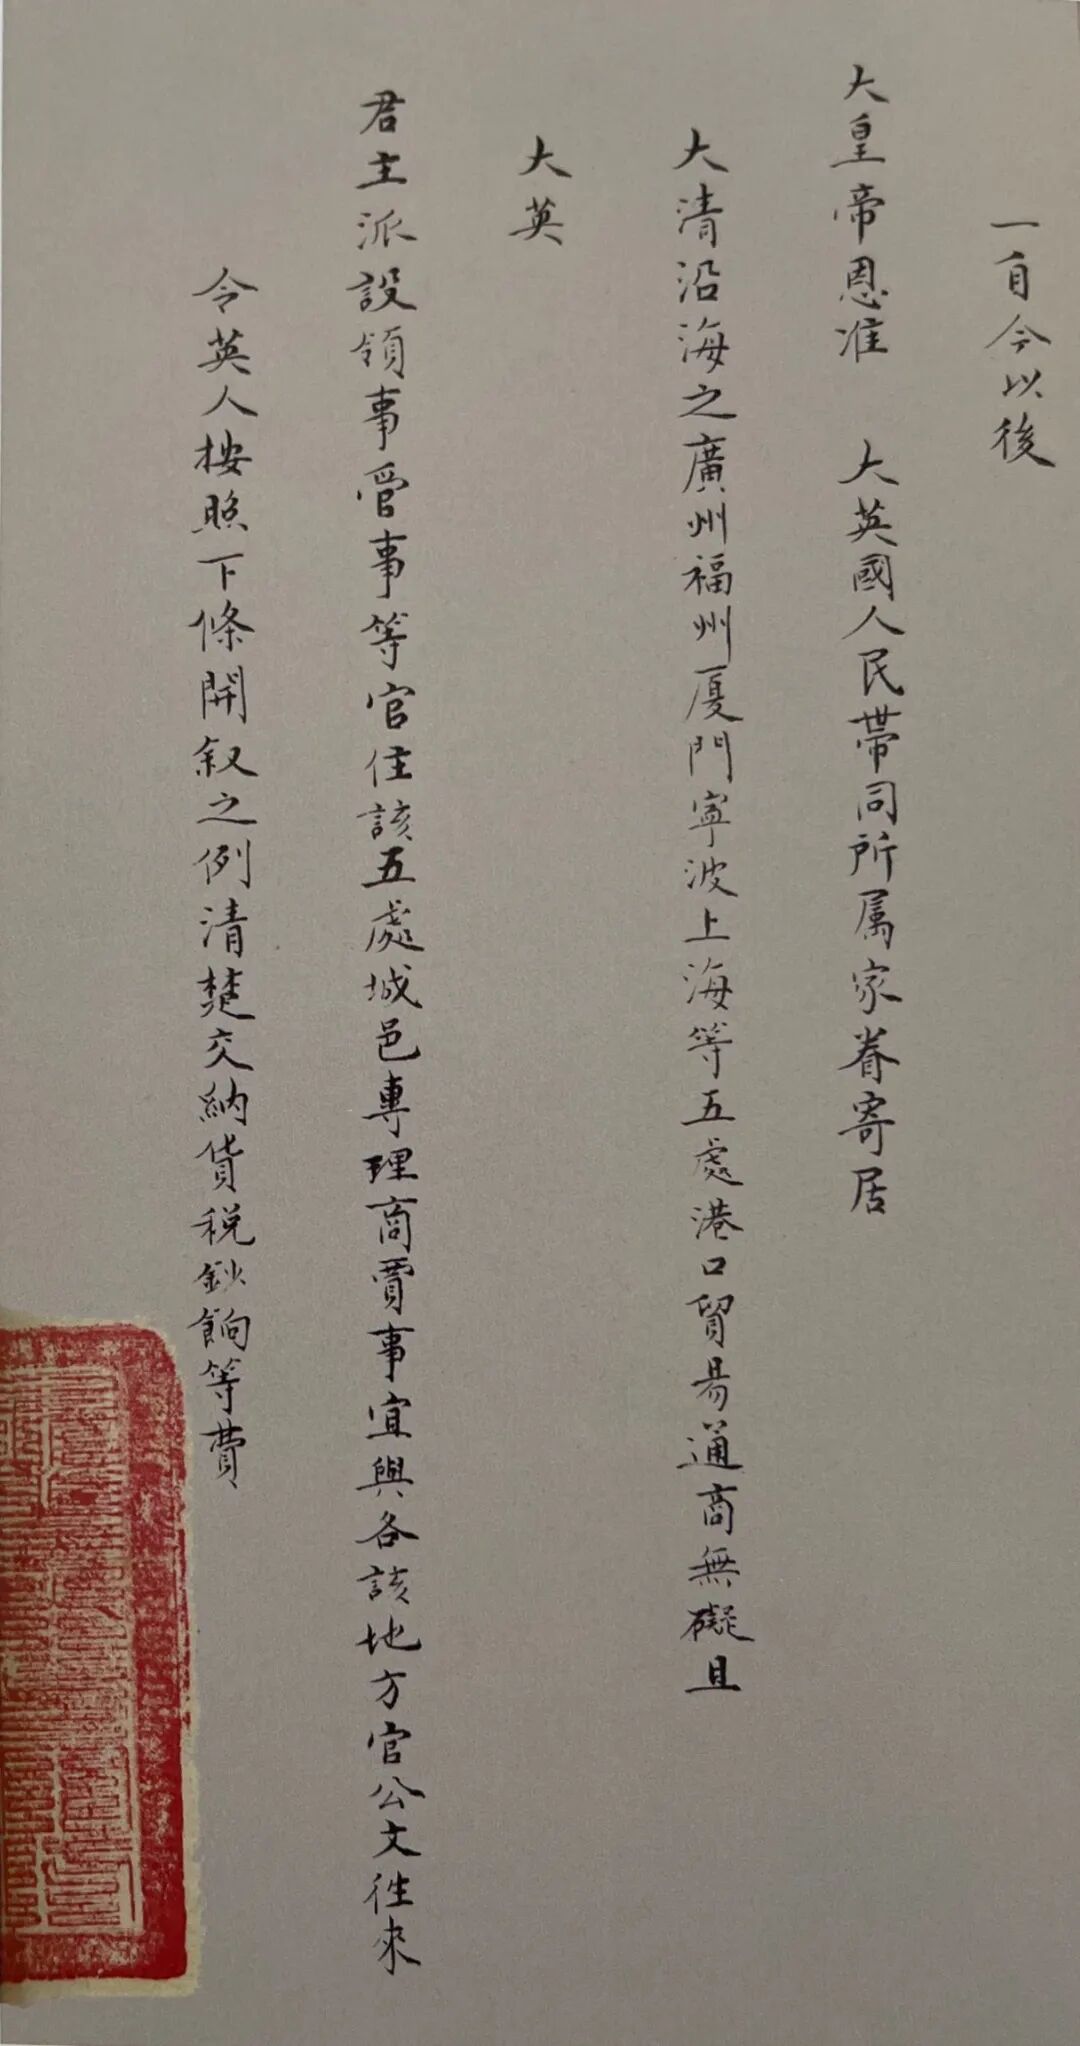 一自今以後
大皇帝恩准　大英國人民帶同所属家眷寄居
大清沿海之廣州福州厦門寧波上海等五處港口貿易通商無礙且
大英
君主派設領事管事等官住該五處城邑專理商賈事宜與各該地方官公文徃來
令英人按照下條開叙之例清楚交納貨税鈔餉等費